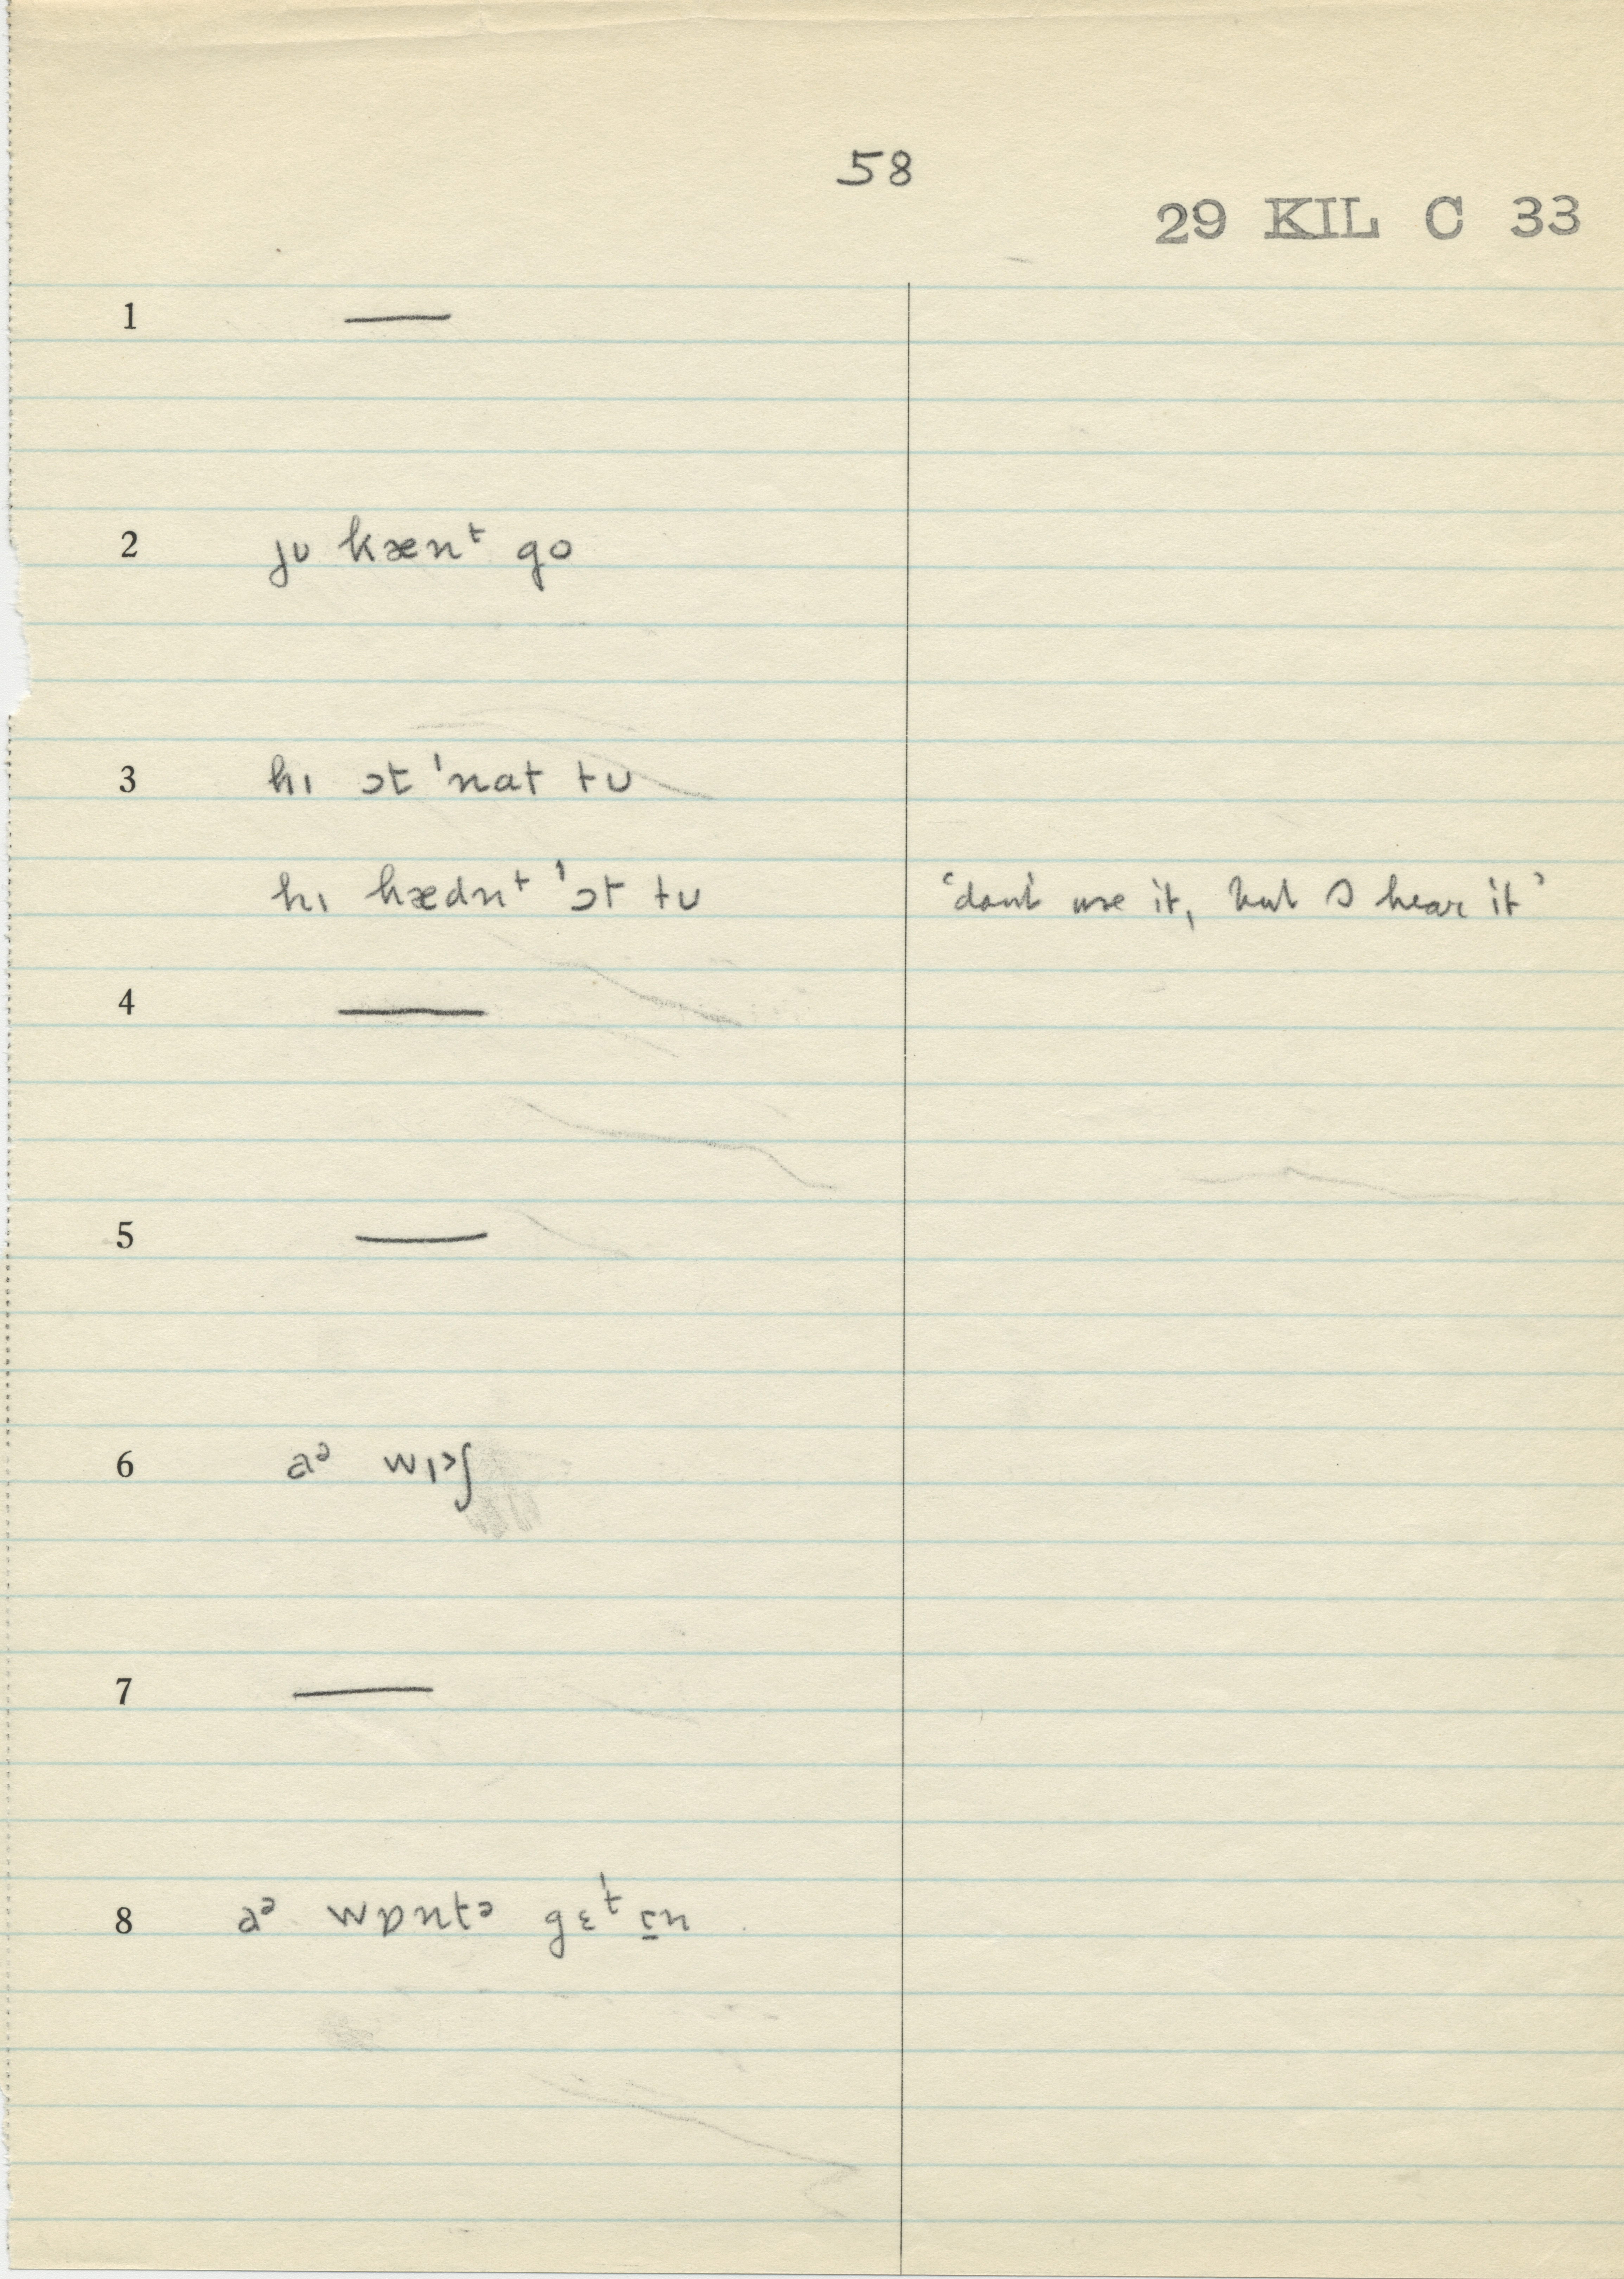 58
29 KIL C 33
1 —
2 ju kænᵗ go
3 hɪ ɔt ˈnat tu
hɪ hædnᵗ ˈɔt tu ‘don't use it, but I hear it’
4 —
5 —
6 aᵊ wɪ˃ʃ
7 —
8 aᵊ wɒntᵊ gɛᵗ ɪn